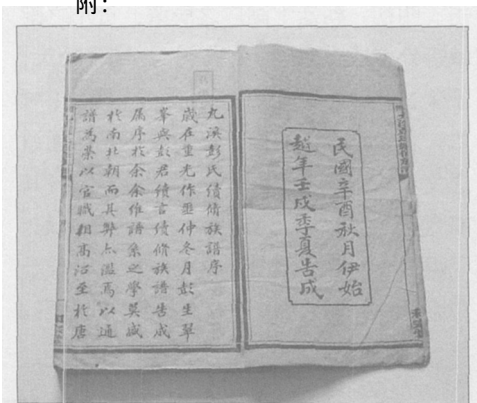 附：
民國辛酉秋月伊始
越年壬戌季夏告成
九溪彭氏續脩族譜序
歲在重光作噩仲冬月彭生翠
峯與彭君續古續脩族譜告成
属序於余余維譜系之學莫盛
於南北朝而其弊亦濫焉以通
譜為榮以官職相高沿至於唐